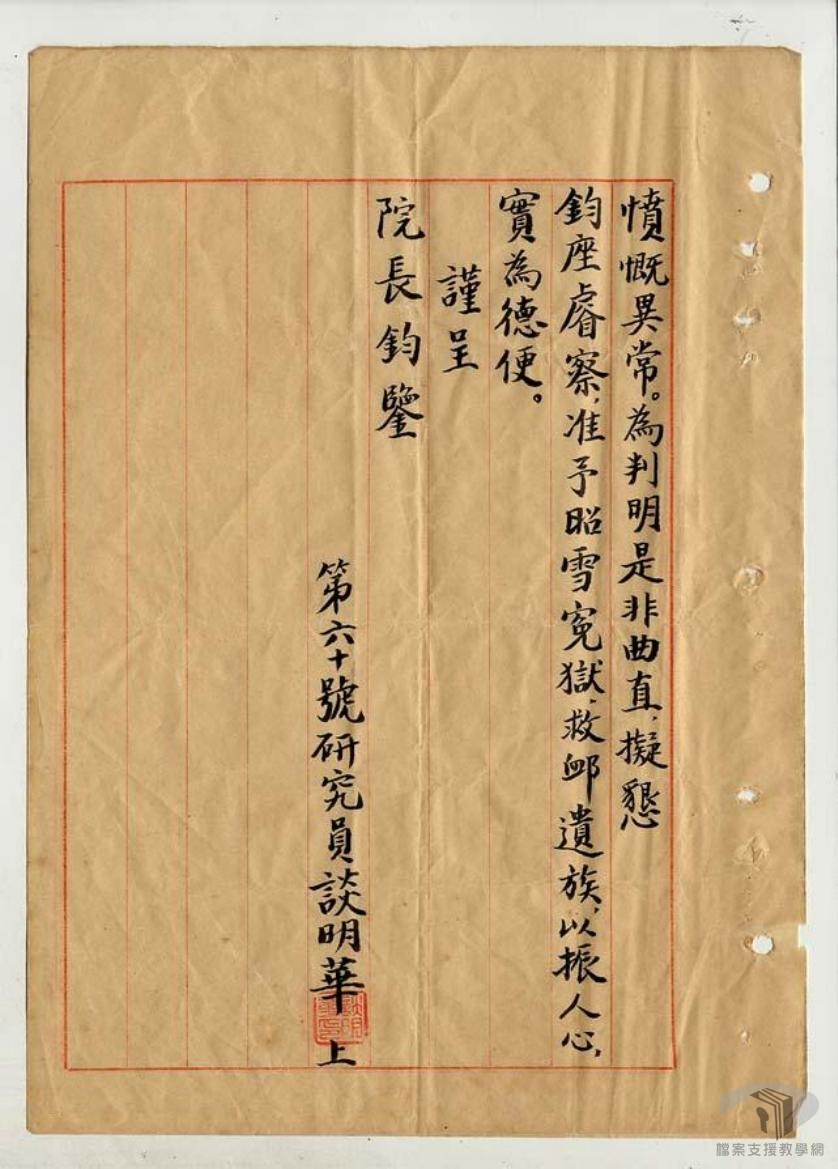 憤慨異常。為判明是非曲直，擬懇
鈞座睿察，准予昭雪寃獄，救卹遺族，以振人心，
實為德便。
謹呈
院長鈞鑒
第六十號研究員談明華上
檔案支援教學網